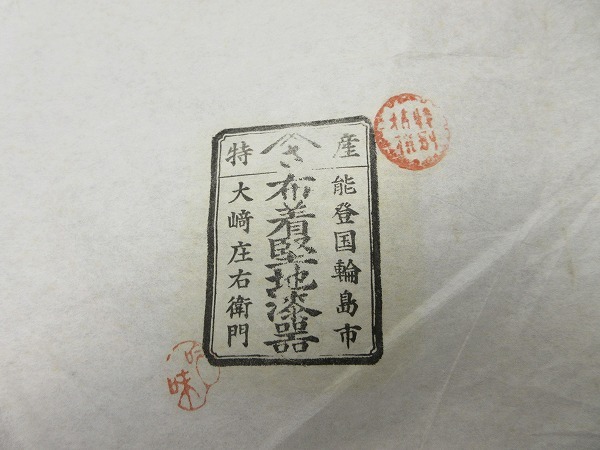 産
特
能登国輪島市
さ布着堅地漆器
大﨑庄右衛門
特別
精撰
吟味